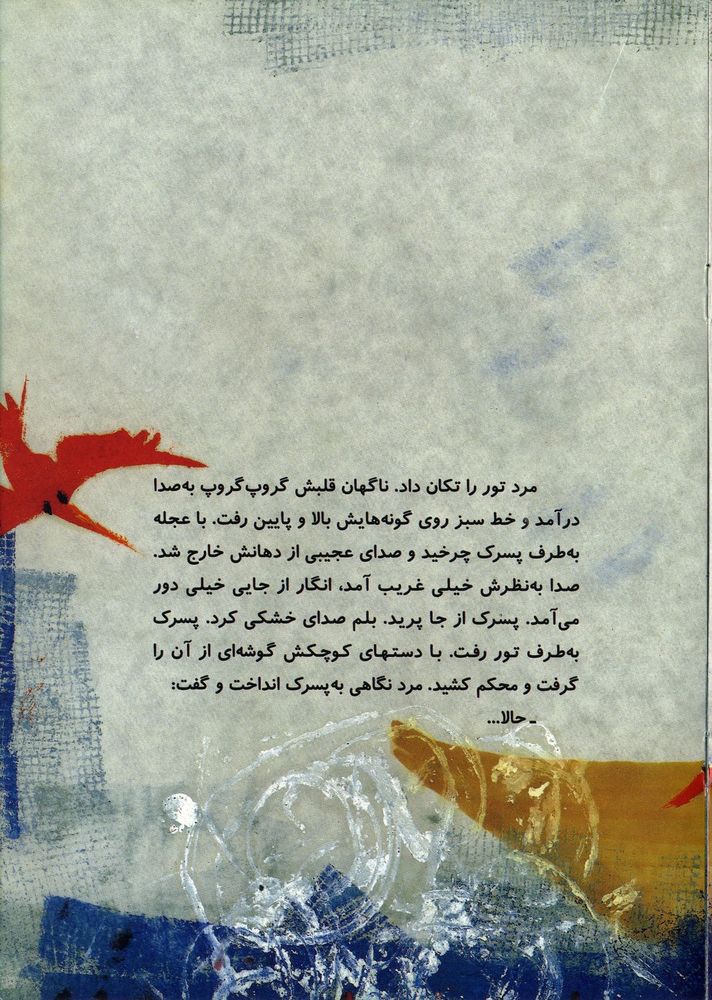 مرد تور را تکان داد. ناگهان قلبش گروپ‌گروپ به‌صدا
درآمد و خط سبز روی گونه‌هایش بالا و پایین رفت. با عجله
به‌طرف پسرک چرخید و صدای عجیبی از دهانش خارج شد.
صدا به‌نظرش خیلی غریب آمد، انگار از جایی خیلی دور
می‌آمد. پسرک از جا پرید. بلم صدای خشکی کرد. پسرک
به‌طرف تور رفت. با دستهای کوچکش گوشه‌ای از آن را
گرفت و محکم کشید. مرد نگاهی به‌پسرک انداخت و گفت:
ـ حالا...